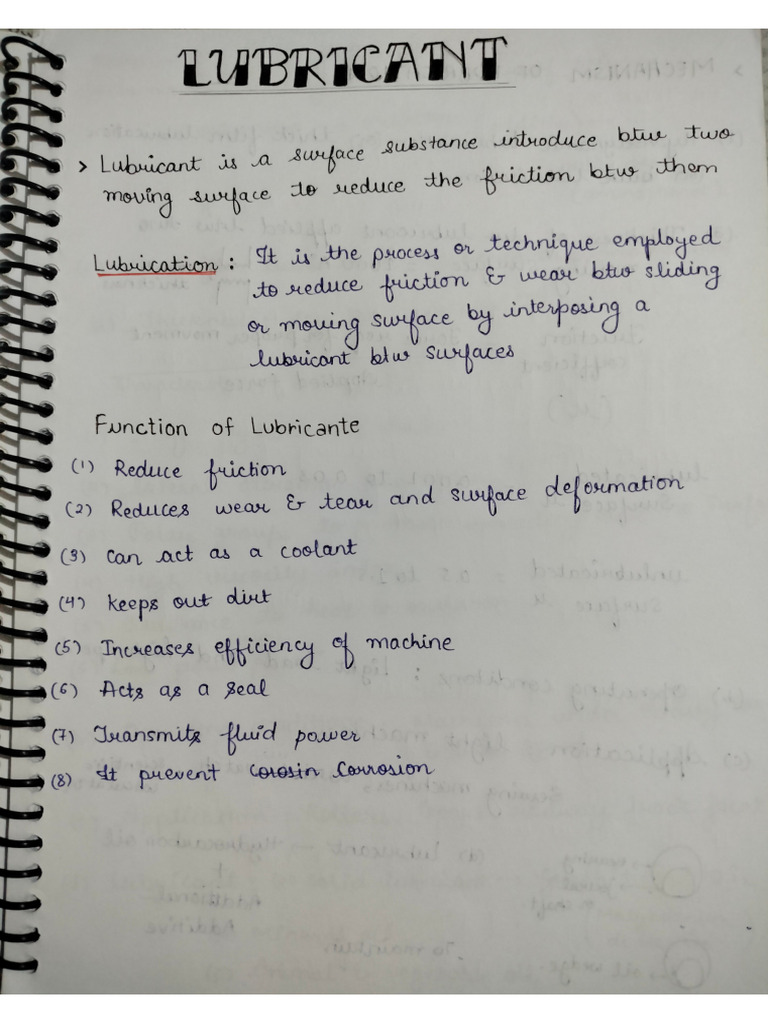 LUBRICANT
> Lubricant is a surface substance introduce btw two
moving surface to reduce the friction btw them
Lubrication : It is the process or technique employed
to reduce friction & wear btw sliding
or moving surface by interposing a
lubricant btw surfaces
Function of Lubricante
(1) Reduce friction
(2) Reduces wear & tear and surface deformation
(3) Can act as a coolant
(4) keeps out dirt
(5) Increases efficiency of machine
(6) Acts as a seal
(7) Transmits fluid power
(8) It prevent corosin Corrosion